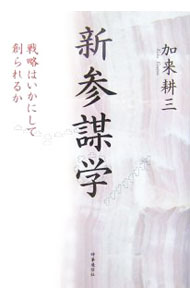 加来耕三
新参謀学
戦略はいかにして
創られるか
時事通信社